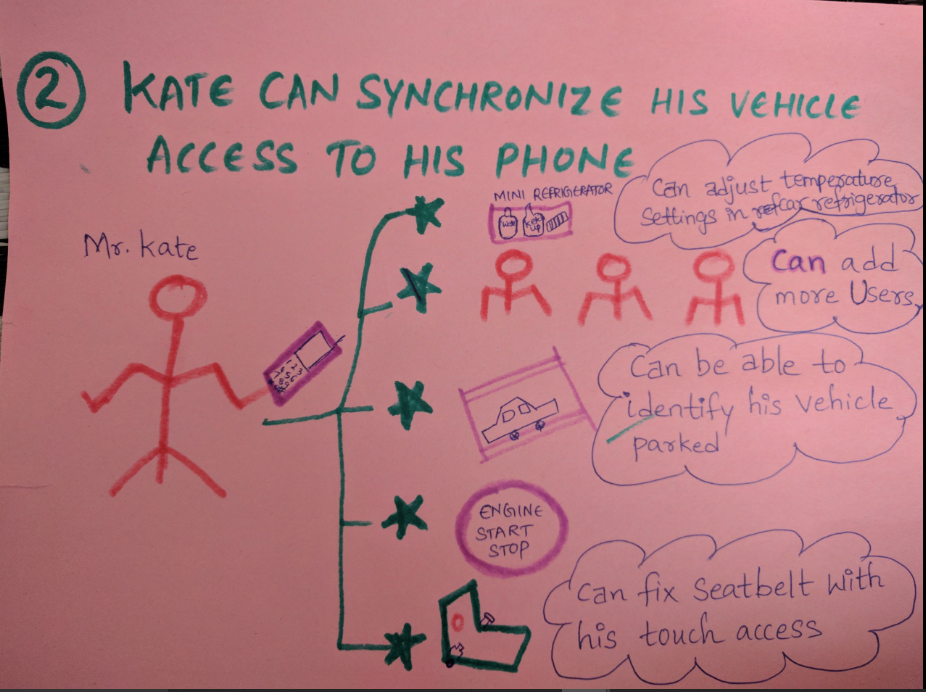 2 KATE CAN SYNCHRONIZE HIS VEHICLE
ACCESS TO HIS PHONE
Mr. Kate
MINI REFRIGIERATOR
Can adjust temperature
settings in car refrigerator
Can add
more Users,
Can be able to
identify his vehicle
parked
ENGINE
START
STOP
Can fix Seatbelt with
his touch access